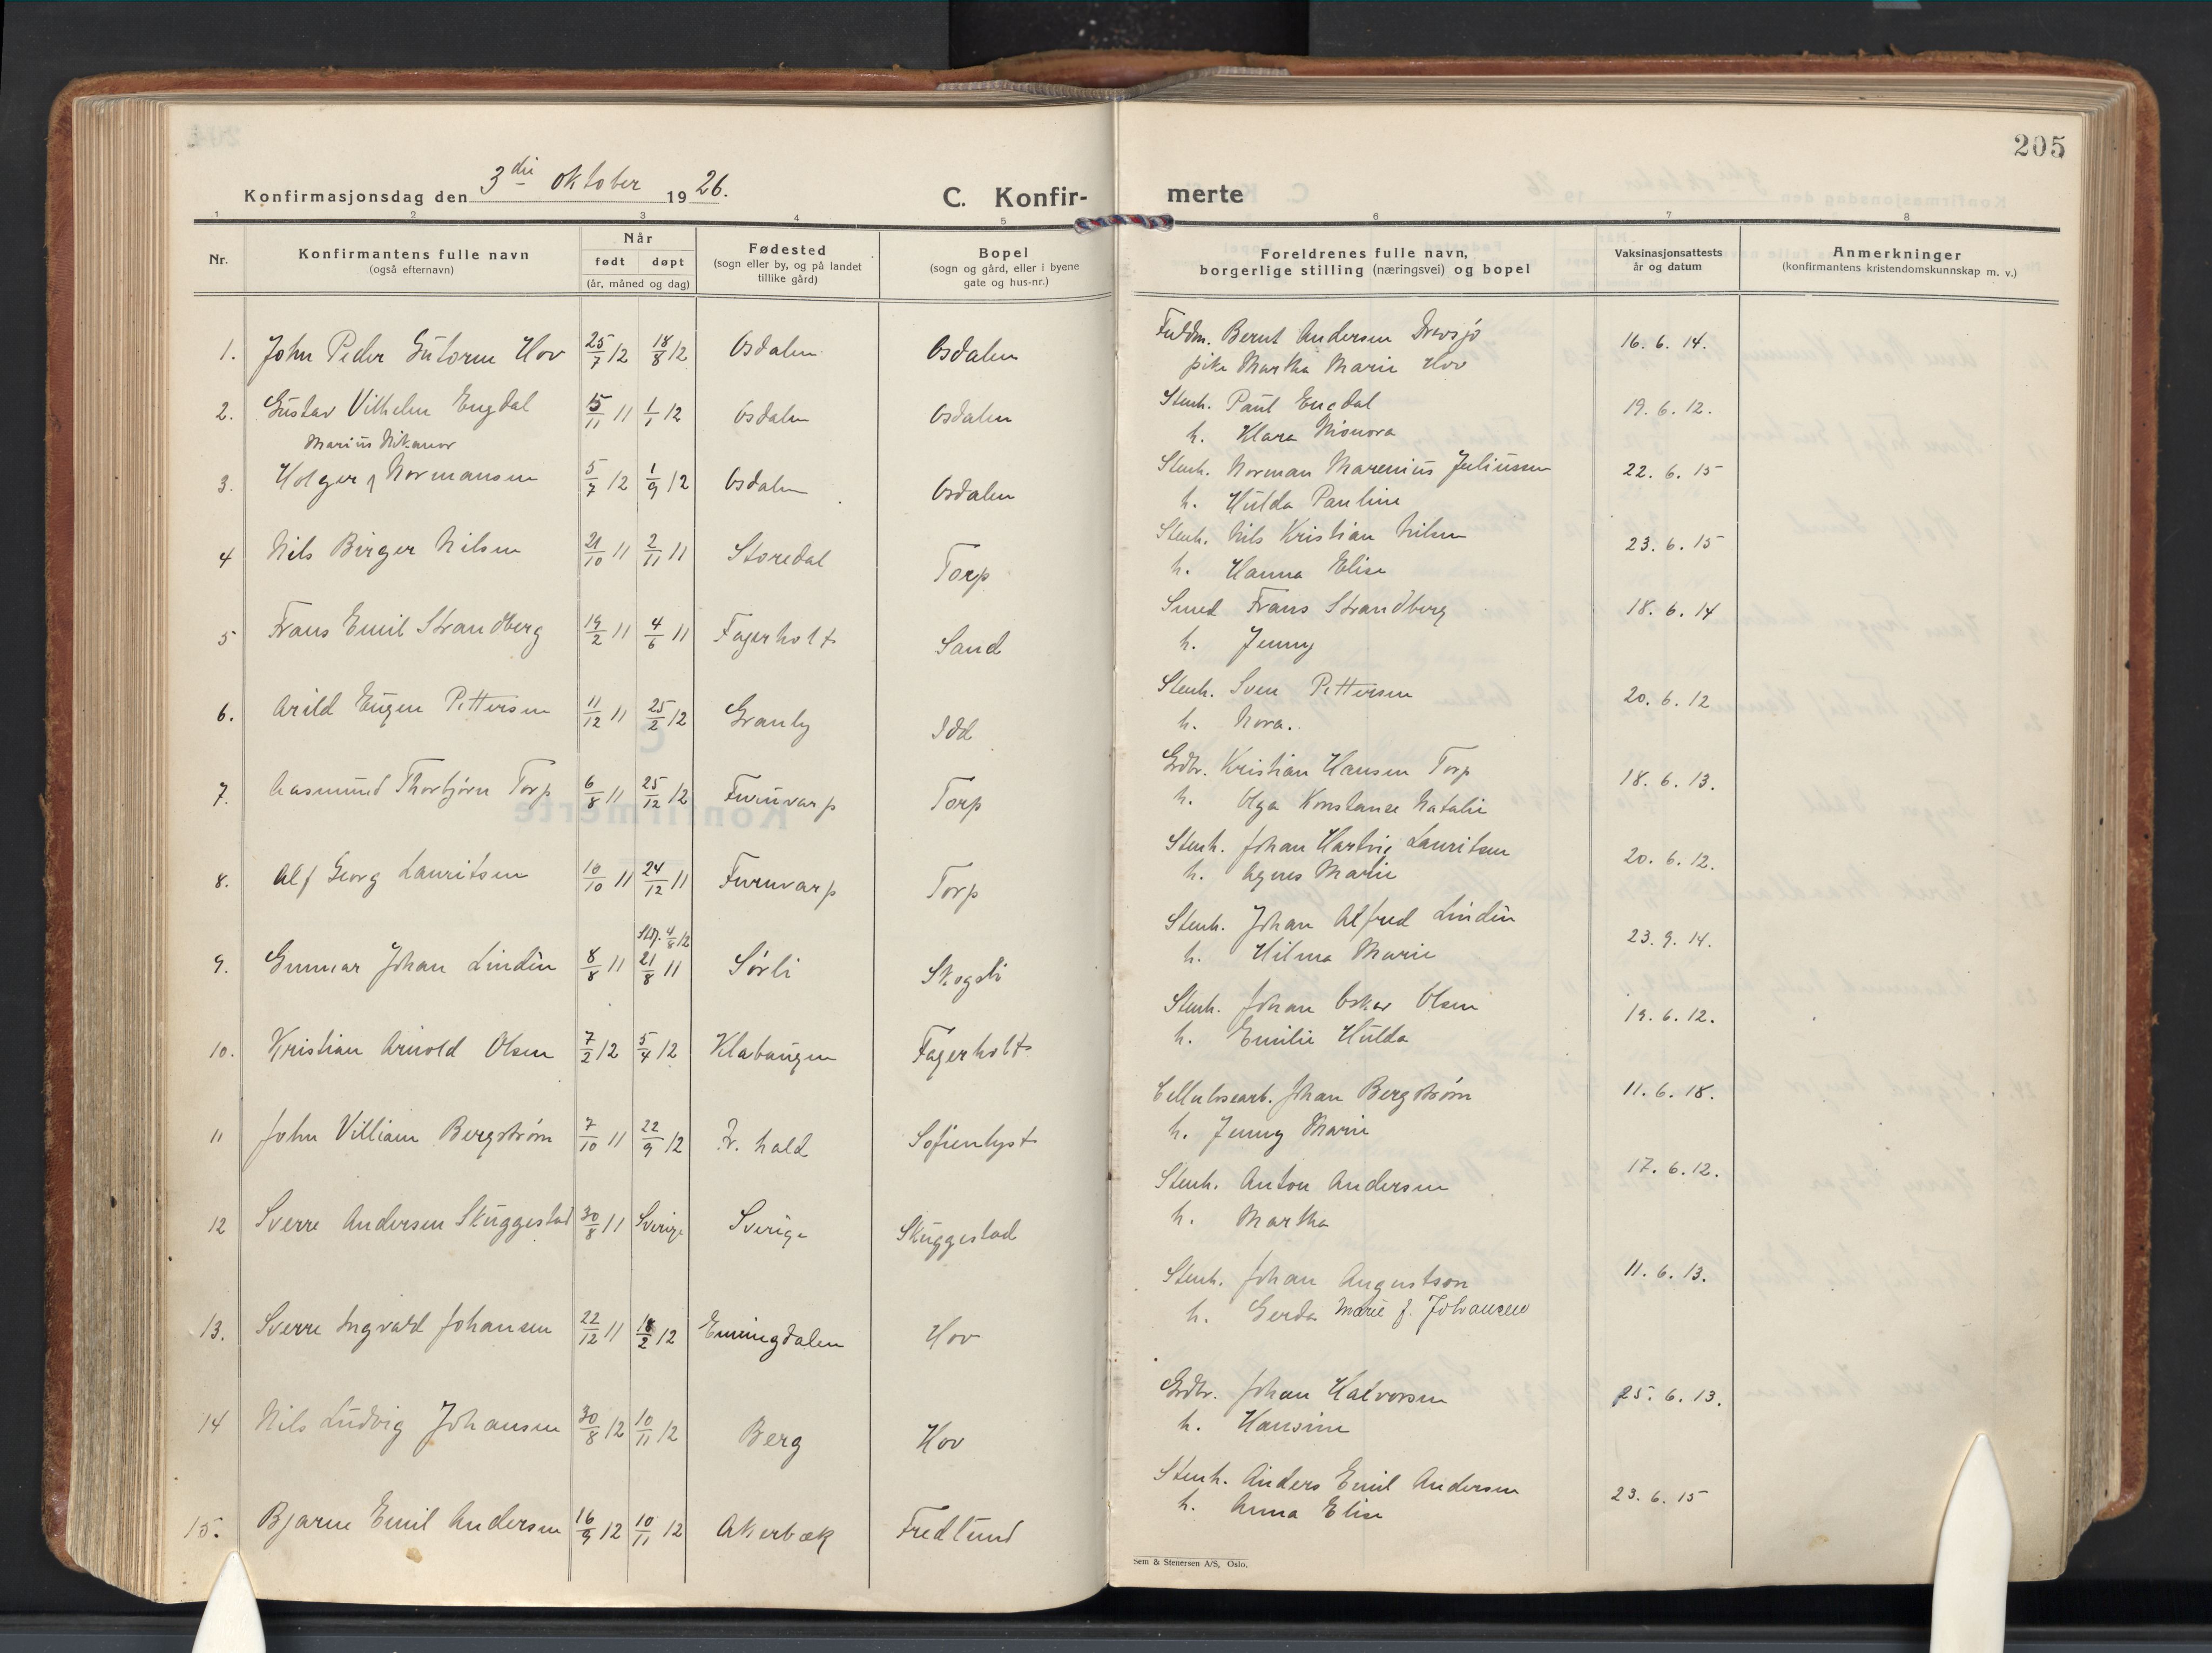 205
Konfirmasjonsdag den 3die Oktober 1926.
C. Konfirmerte
1 2 3 4 5 6 7 8
Nr. Konfirmantens fulle navn (også efternavn) Når født døpt (år, måned og dag) Fødested (sogn eller by, og på landet tillike gård) Bopel (sogn og gård, eller i byene gate og hus-nr.) Foreldrenes fulle navn, borgerlige stilling (næringsvei) og bopel Vaksinasjonsattests år og datum Anmerkninger (konfirmantens kristendomskunnskap m. v.)
1. John Peder Gutorm Hov 25/7 12 18/8 12 Osdalen Osdalen Fuldm. Bernt Andersen 16. 6. 14.
pike Martha Marie Hov
2. Gustav Vilhelm Engdal 15/11 11 1/1 12 Osdalen Osdalen Stenh. Paul Engdal 19. 6. 12.
h. Klara
Marius Nikanor
3. Holger Normansen 5/7 12 1/9 12 Osdalen Osdalen Stenh. Norman Marenius Juliussen 22. 6. 15
h. Hulda Pauline
4 Nils Birger Nilsen 21/10 11 2/11 11 Storedal Torp Stenh. Nils Kristian Nilsen 23. 6. 15
h. Hanna Elise
5 Frans Emil Strandberg 19/2 11 4/6 11 Fagerholt Sand Smed Frans Strandberg 18. 6. 14
h. Jenny
6. Arild Eugen Pettersen 11/12 11 25/2 12 Granby Idd Stenh. Sven Pettersen 20. 6. 12
h. Nora.
7. Aasmund Thorbjørn Torp 6/8 11 25/12 12 Furuvarp Torp Grdbr. Kristian Hansen Torp 18. 6. 13.
h. Olga Konstanse Natalie
8. Alf Georg Lauritsen 10/10 11 24/12 11 Furuvarp Torp Stenh. Johan Hartvig Lauritsen 20. 6. 12.
h. Agnes Marie
9. Gunnar Johan Lindén 8/8 11 21/8 11 4/8 12 Sørli Skogsli Stenh. Johan Alfred Lindén 23. 9. 14.
h. Hilma Marie
10. Kristian Arnold Olsen 7/2 12 5/4 12 Klabaugen Fagerholt Stenh. Johan Oskar Olsen 19. 6. 12.
h. Emilie Hulda
11 John Villiam Bergstrøm 7/10 11 22/9 12 Fr. hald Sofienlyst Cellulosearb. Johan Bergstrøm 11. 6. 18.
h. Jenny Marie
12 Sverre Andersen Skuggestad 30/8 11 Sverige Sverige Skuggestad Stenh. Anton Andersen 17. 6. 12.
h. Martha
13. Sverre Ingvald Johansen 22/12 11 18/2 12 Enningdalen Hov Stenh. Johan Augustson 11. 6. 13.
h. Gerda Marie f. Johansen
14 Nils Ludvig Johansen 30/8 12 10/11 12 Berg Hov Grdbr. Johan Halvorsen 25. 6. 13.
h. Hansine
15. Bjarne Emil Andersen 16/9 12 10/11 12 Akerbæk Fredlund Stenh. Anders Emil Andersen 23. 6. 15
h. Anna Elise
Sem & Stenersen A/S, Oslo.